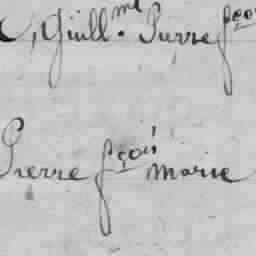 Guill.me Pierre fçois
Pierre fçois marie